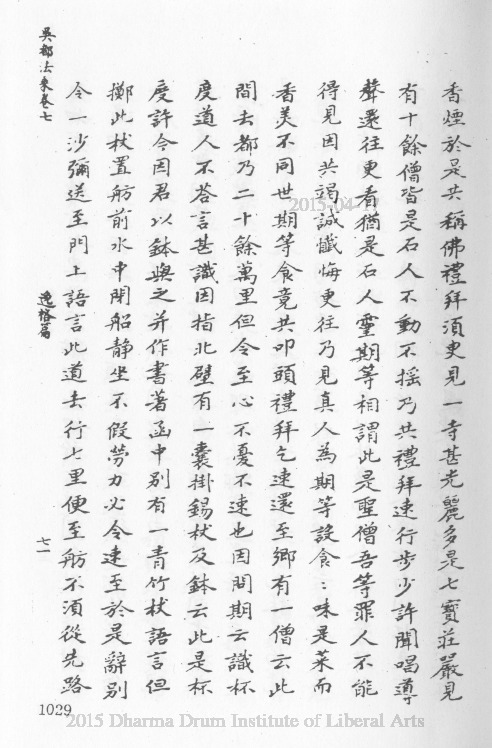 香煙於是共稱佛禮拜須臾見一寺甚光麗多是七寶莊嚴見
有十餘僧皆是石人不動不搖乃共禮拜速行步少許聞唱導
聲還往更看猶是石人靈期等相謂此是聖僧吾等罪人不能
得見因共竭誠懺悔更往乃見真人為期等設食:味是菜而
香美不同世期等食竟共叩頭禮拜乞速還至鄉有一僧云此
間去都乃二十餘萬里但令至心不憂不速也因問期云識杯
度道人不荅言甚識因指北壁有一囊掛錫杖及鉢云此是杯
度許今因君以鉢與之并作書著函中别有一青竹杖語言但
擲此杖置舫前水中閉船静坐不假勞力必令速至於是辭别
令一沙彌送至門上語言此道去行七里便至舫不須從先路
吳都法乘卷七
逸格篇
七一
1029
2015-04-
2015 Dharma Drum Institute of Liberal Arts